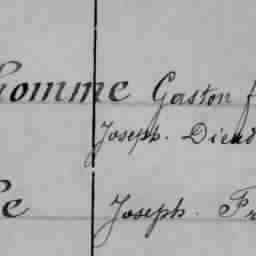 homme Gaston f
Joseph. Dieud
Le Joseph. Fr